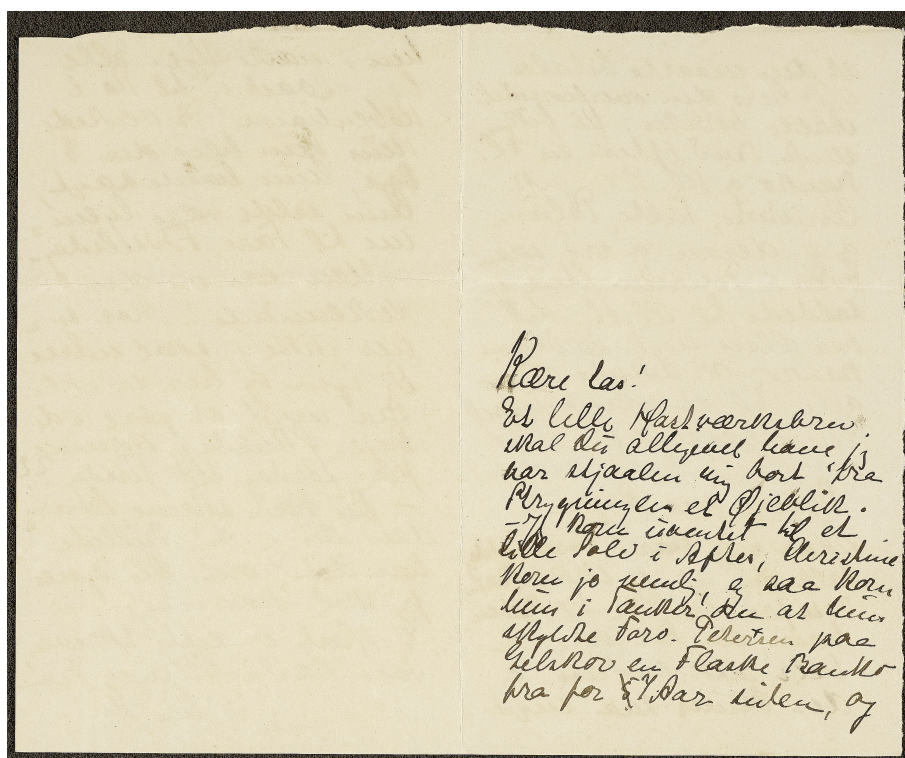 Kære Las!
Et lille Hastværksbrev
skal du alligevel have jeg
har stjaalen mig bort fra
Strygningen et Øjeblik.
– Jeg kom uventet til et
lille Sold i Aftes, Christine
kom jo nemlig, og saa kom
hun i Tanker om at hun
skyldte Farv. Petersen paa
Gelskov en Flaske Banko
fra for 7 Aar siden, og